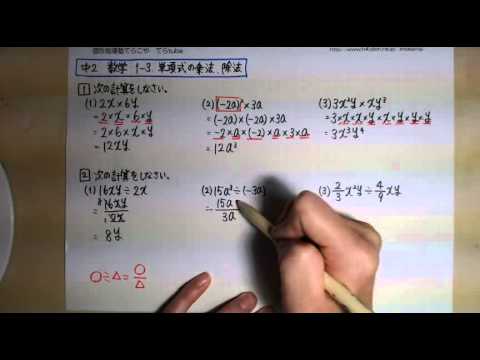 個別指導塾てらこや てらtube
中2 数学 1-3. 単項式の乗法、除法
1 次の計算をしなさい。
(1) 2x×6y
=2×x×6×y
=2×6×x×y
=12xy
(2) (-2a)²×3a
=(-2a)×(-2a)×3a
=-2×a×(-2)×a×3×a
=12a³
(3) 3x²y×xy³
=3×x×x×y×x×y×y×y
=3x³y⁴
2 次の計算をしなさい。
(1) 16xy÷2x
=16xy/2x
8
=8y
(2) 15a²÷(-3a)
15a
3a
(3) 2/3x²y÷4/9xy
○÷△=○/△